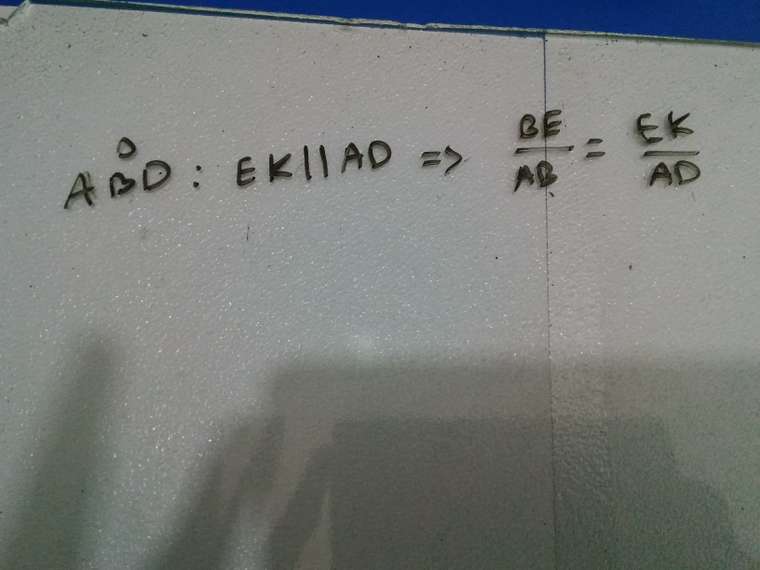 A B̊ D : EK || AD => BE/AB = EK/AD